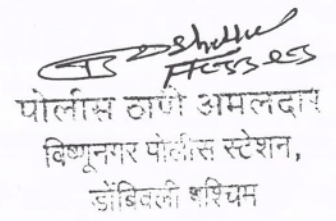 पोलीस ठाणे अमलदार
विष्णूनगर पोलीस स्टेशन,
डोंबिवली पश्चिम